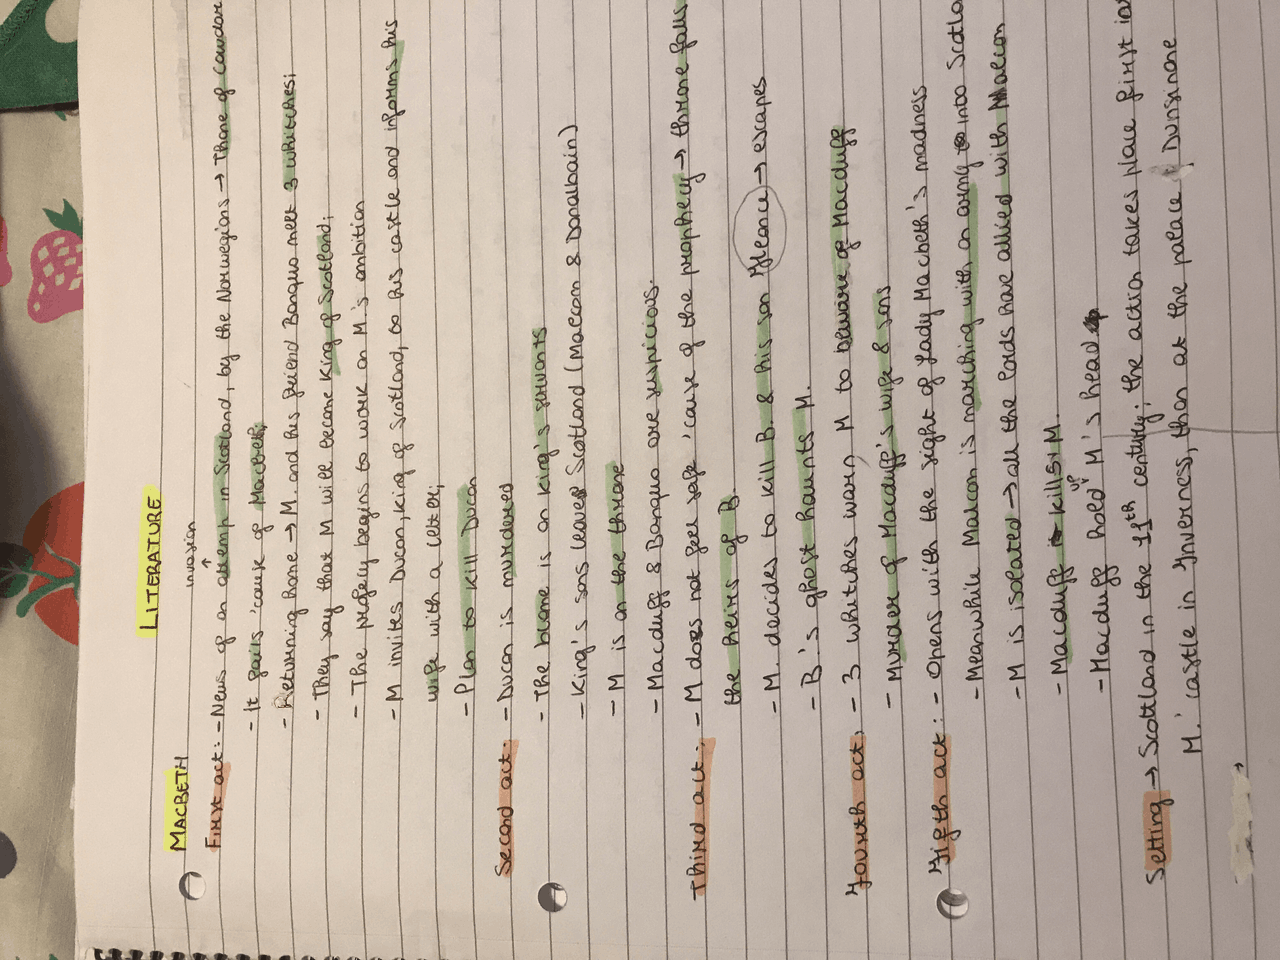 LITERATURE
MACBETH
invasion
First act: - News of an attemp in Scotland, by the Norwegians → Thane of Cawdor
- It fails 'cause of Macbeth;
- Returning home → M. and his friend Banquo meet 3 whitches;
- They say that M will become King of Scotland;
- The profecy begins to work on M.'s ambition
- M invites Ducan, King of Scotland, to his castle and informs his
wife with a letter;
- Plan to kill Ducan
Second act: - Ducan is murdered
- The blame is on King's servants
- King's sons leave Scotland (Malcom & Donalbain)
- M is on the throne
- Macduff & Banquo are suspicious.
Third act: - M does not feel safe 'cause of the prophecy → throne falls
the heirs of B.
- M. decides to kill B. & his son Fleance → escapes
- B.'s ghost haunts M.
Fourth act: - 3 whitches warn M to beware of Macduff
- Murder of Macduff's wife & sons
Fifth act: - Opens with the sight of Lady Macbeth's madness
- Meanwhile Malcon is marching with an army into Scotla
- M is isolated → all the Lords have allied with Malcon
- Macduff kills M.
- Macduff hold up M's head
Setting → Scottland in the 11th century; the action takes place first in
M.' castle in Inverness, than at the palace Dunsinane